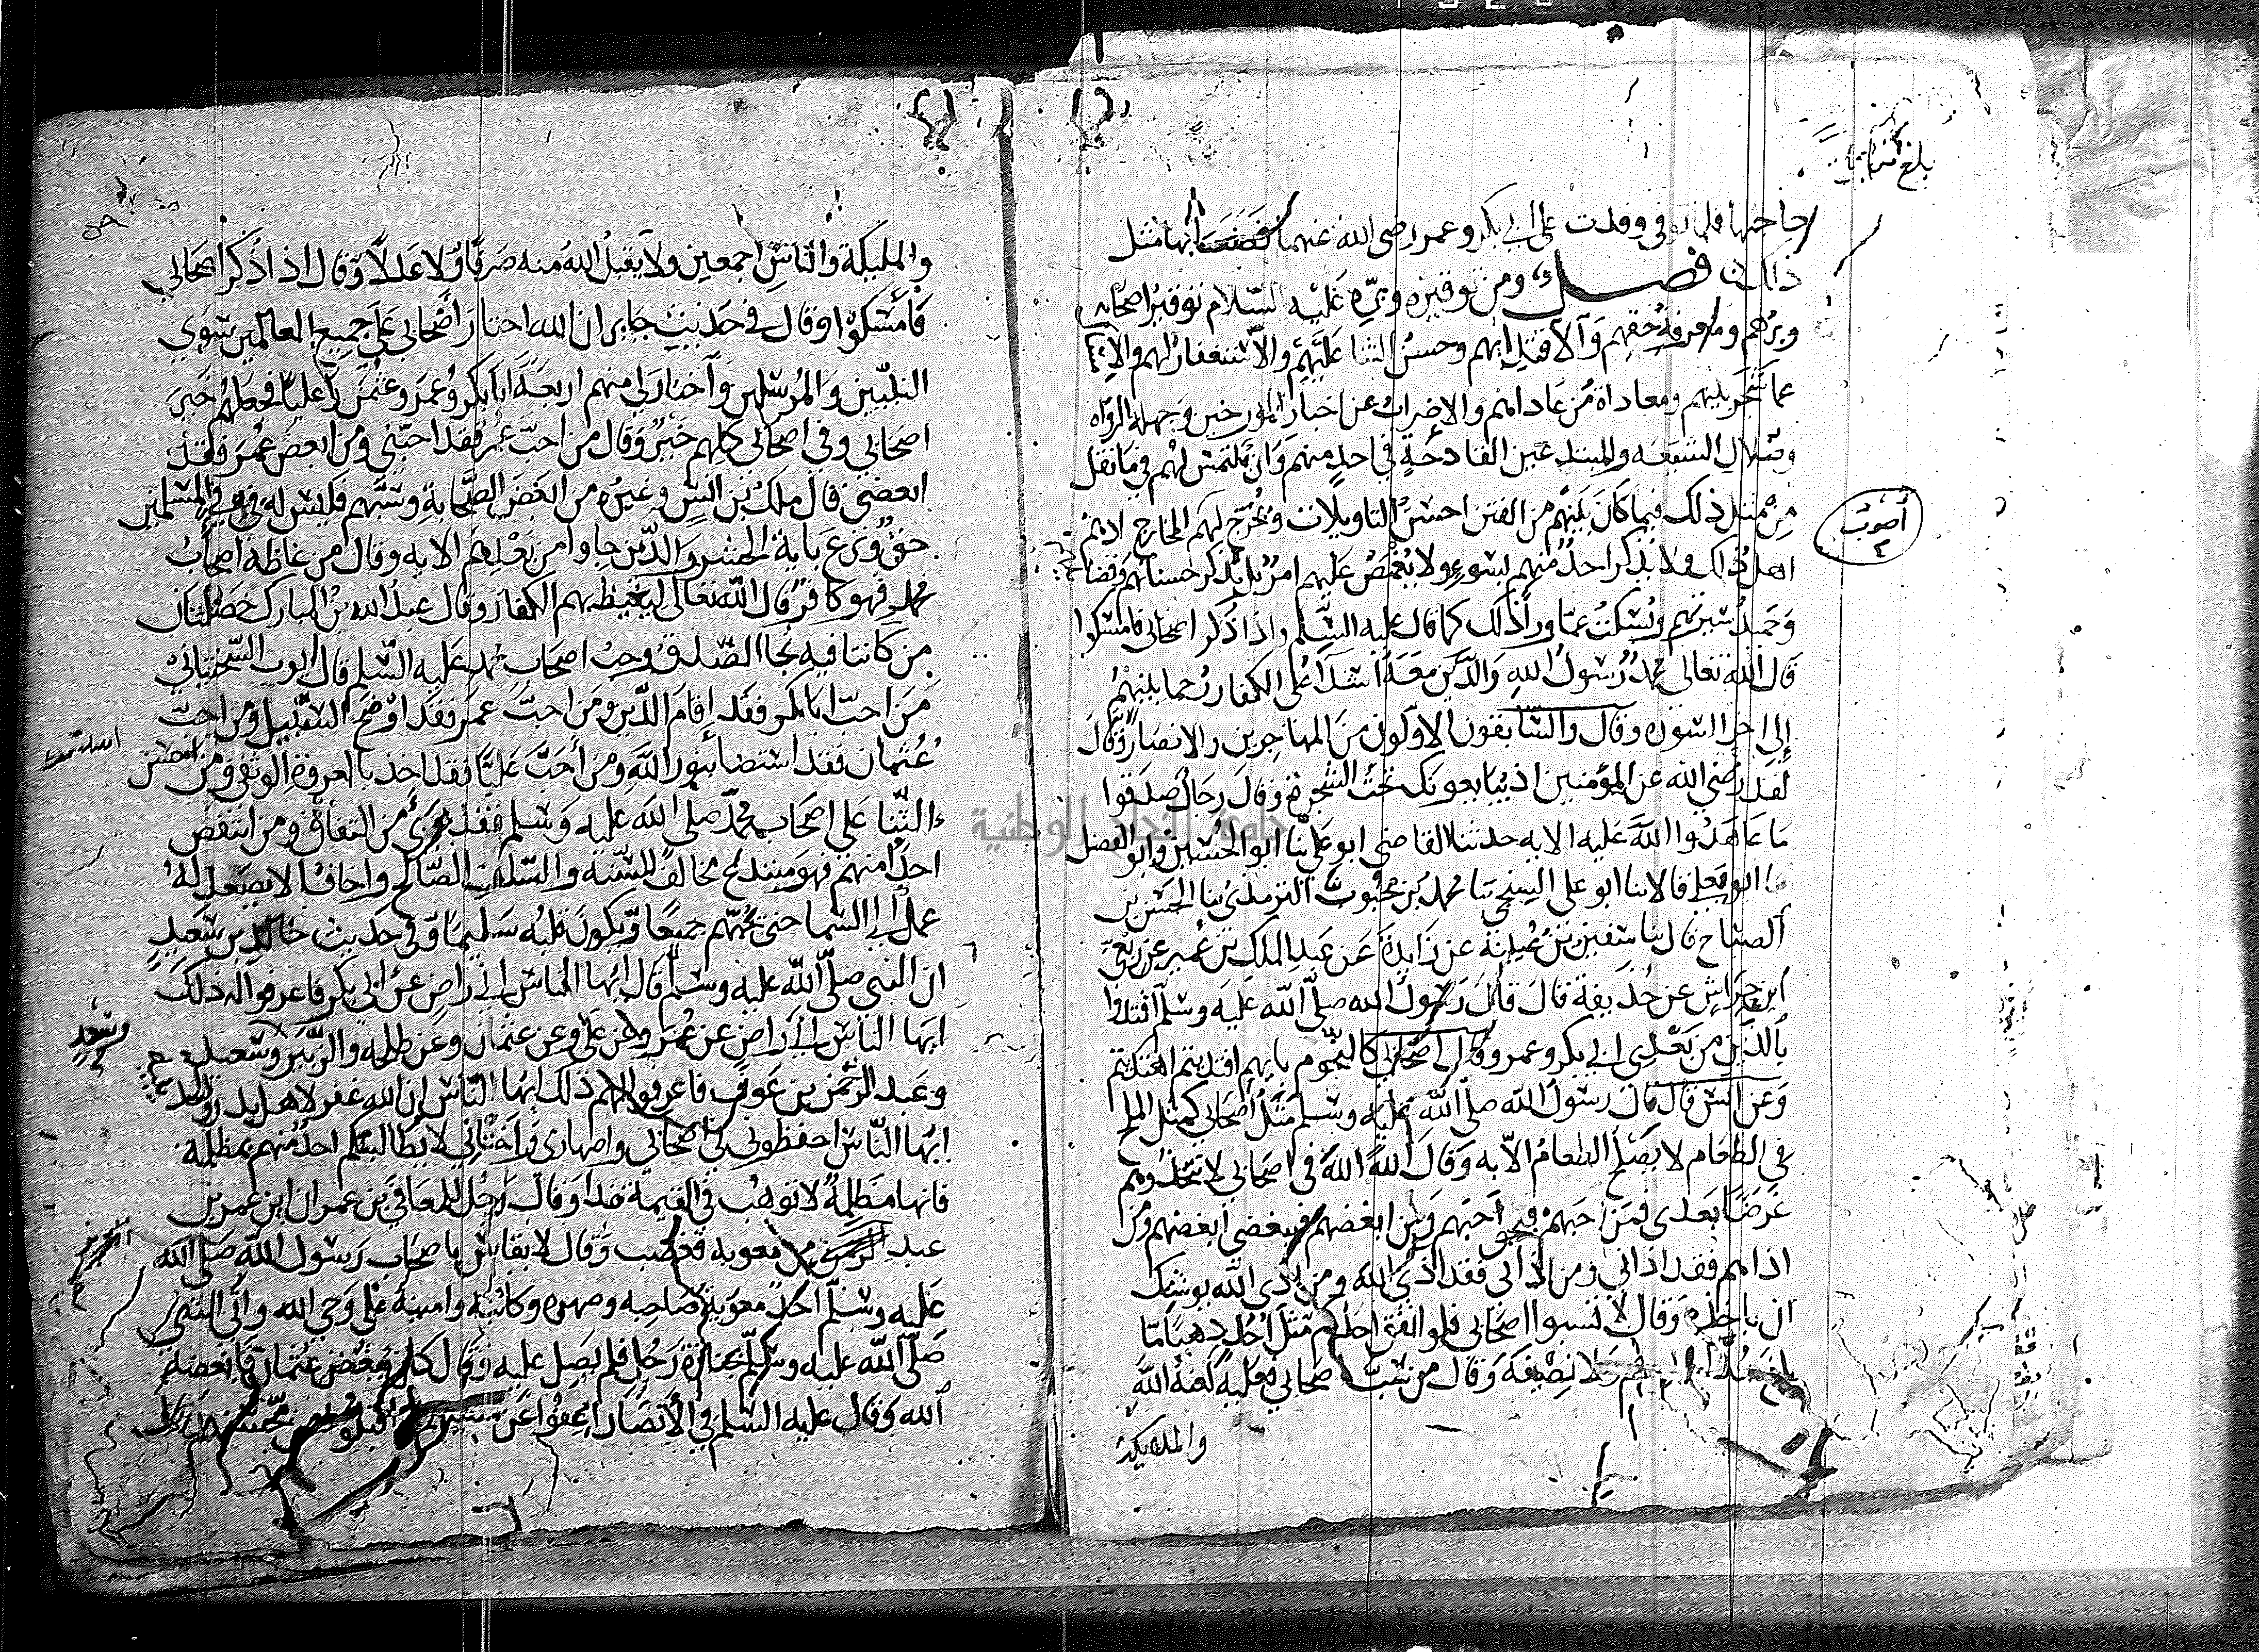 بلغ مقابلة
حاجتها فلما توفي وفدت على ابي بكر وعمر رضي الله عنهما فصنعا بها مثل
ذلك فصل ومن توقيره وبره عليه السلام توقير اصحابه
وبرهم ومعرفة حقهم والاقتدا بهم وحسن الثنا عليهم والاستغفار لهم والامساك
عما شجر بينهم ومعاداة من عاداهم والاضراب عن اخبار المورخين وجهلة الرواة
وضلال الشيعة والمبتدعين القادحة في احد منهم وان يلتمس لهم فيما نقل
من مثل ذلك فيما كان بينهم من الفتن احسن التاويلات ويخرج لهم المخارج اذ هم
أصوب
اهل ذلك ولا يذكر احد منهم بسوء ولا يغمص عليهم امر بل يذكر حسناتهم وفضائلهم
وحميد سيرتهم ويسكت عما ورا ذلك كما قال عليه السلم واذا ذكر اصحابي فامسكوا
قال الله تعالى محمد رسول الله والذين معه اشدا على الكفار رحما بينهم
الى اخر السورة وقال والسابقون الاولون من المهاجرين والانصار وقال
لقد رضي الله عن المؤمنين اذ يبايعونك تحت الشجرة وقال رجال صدقوا
ما عاهدوا الله عليه الاية حدثنا القاضي ابو علي نا ابو الحسين وابو الفضل
قالا نا ابو يعلى نا ابو علي السنجي نا محمد بن محبوب نا الترمذي نا الحسن بن
الصباح قال نا سفين بن عيينة عن زايدة عن عبد الملك بن عمير عن ربعي
ابن حراش عن حذيفة قال قال رسول الله صلى الله عليه وسلم اقتدوا
بالذين من بعدي ابي بكر وعمر وقال اصحابي كالنجوم بايهم اقتديتم اهتديتم
وعن انس قال قال رسول الله صلى الله عليه وسلم مثل اصحابي كمثل الملح
في الطعام لا يصلح الطعام الا به وقال الله الله في اصحابي لا تتخذوهم
غرضا بعدي فمن احبهم فبحبي احبهم ومن ابغضهم فببغضي ابغضهم ومن
اذاهم فقد اذاني ومن اذاني فقد اذى الله ومن اذى الله يوشك
ان ياخذه وقال لا تسبوا اصحابي فلو انفق احدكم مثل احد ذهبا ما
بلغ مد احدهم ولا نصيفه وقال من سب اصحابي فعليه لعنة الله
والمليكة
والمليكة والناس اجمعين ولا يقبل الله منه صرفا ولا عدلا وقال اذا ذكر اصحابي
فامسكوا وقال في حديث جابر ان الله اختار اصحابي على جميع العالمين سوى
النبيين والمرسلين واختار لي منهم اربعة ابا بكر وعمر وعثمن وعليا فجعلهم خير
اصحابي وفي اصحابي كلهم خير وقال من احب عمر فقد احبني ومن ابغض عمر فقد
ابغضني قال ملك بن انس وغيره من ابغض الصحابة وسبهم فليس له في في المسلمين
حق ونزع باية الحشر والذين جاوا من بعدهم الاية وقال من غاظه اصحاب
محمد فهو كافر قال الله تعالى ليغيظ بهم الكفار وقال عبد الله بن المبارك خصلتان
من كانتا فيه نجا الصدق وحب اصحاب محمد عليه السلم قال ايوب السختياني
من احب ابا بكر فقد اقام الدين ومن احب عمر فقد اوضح السبيل ومن احب
عثمان فقد استضا بنور الله ومن احب عليا فقد اخذ بالعروة الوثقى ومن احسن
الثنا على اصحاب محمد صلى الله عليه وسلم فقد برئ من النفاق ومن انتقص
احدا منهم فهو مبتدع مخالف للسنة والسلف الصالح واخاف الا يصعد له
عمل الى السما حتى يحبهم جميعا ويكون قلبه سليما وفي حديث خالد بن سعيد
ان النبي صلى الله عليه وسلم قال ايها الناس اني راض عن ابي بكر فاعرفوا له ذلك
ايها الناس اني راض عن عمر وعن علي وعن عثمان وعن طلحة والزبير وسعد
وسعيد
وعبد الرحمن بن عوف فاعرفوا لهم ذلك ايها الناس ان الله غفر لاهل بدر
ايها الناس احفظوني في اصحابي واصهاري واختاني لا يطالبنكم احد منهم بمظلمة
فانها مظلمة لا توهب في القيمة غدا وقال رجل للمعافى بن عمران اين عمر بن
عبد العزيز من معوية فغضب وقال لا يقاس باصحاب رسول الله صلى الله
عليه وسلم احد معوية صاحبه وصهره وكاتبه وامينه على وحي الله واتى النبي
صلى الله عليه وسلم بجنازة رجل فلم يصل عليه وقال كان يبغض عثمان فابغضه
الله وقال عليه السلم في الانصار اعفوا عن مسيهم واقبلوا من محسنهم